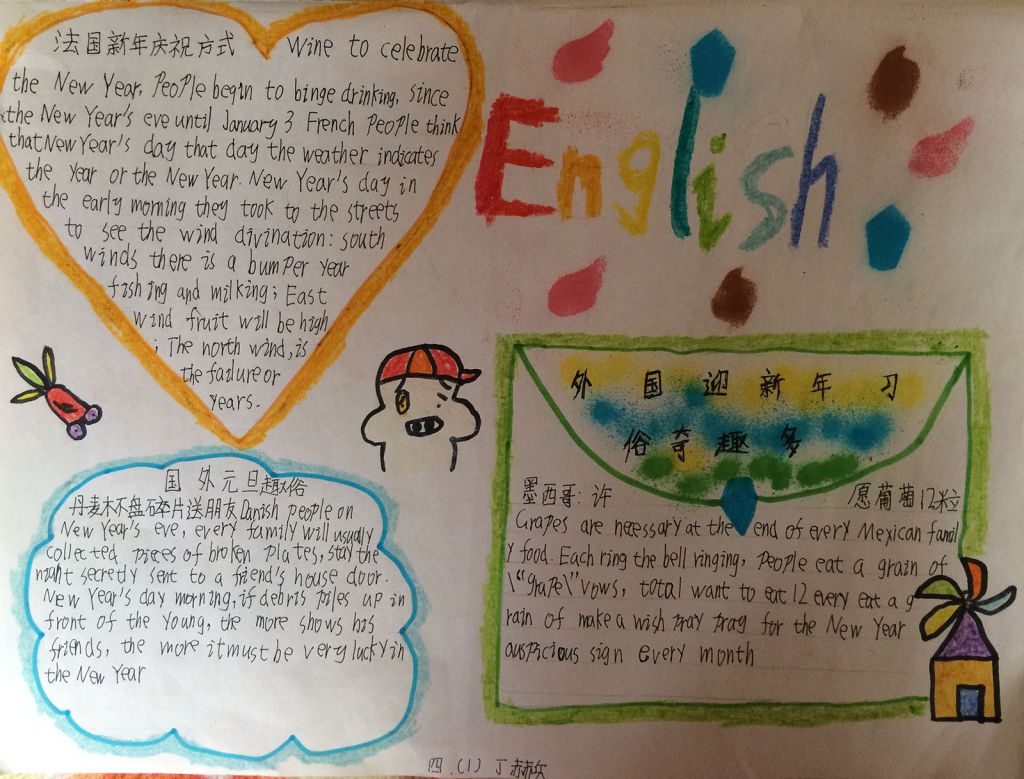 法国新年庆祝方式 Wine to celebrate
the New Year. People begin to binge drinking, since
the New Year's eve until January 3 French People think
that New Year's day that day the weather indicates
the year or the New Year. New Year's day in
the early morning they took to the streets
to see the wind divination: south
winds there is a bumper year
fishing and milking; East
wind fruit will be high
; The north wind, is
the failure or
years.
English
国外元旦趣俗
丹麦木不盘碎片送朋友 Danish people on
New Year's eve, every family will usually
collected pieces of broken plates, stay the
night secretly sent to a friend's house door.
New Year's day morning, if debris piles up in
front of the young, the more shows his
friends, the more it must be very lucky in
the New Year
外国迎新年习
俗奇趣多
墨西哥: 许 愿葡萄12粒
Grapes are necessary at the end of every Mexican famil
y food. Each ring the bell ringing, People eat a grain of
\"grape\" vows, total want to eat 12 every eat a g
rain of make a wish pray pray for the New Year
auspicious sign every month
四.(1) 丁赫